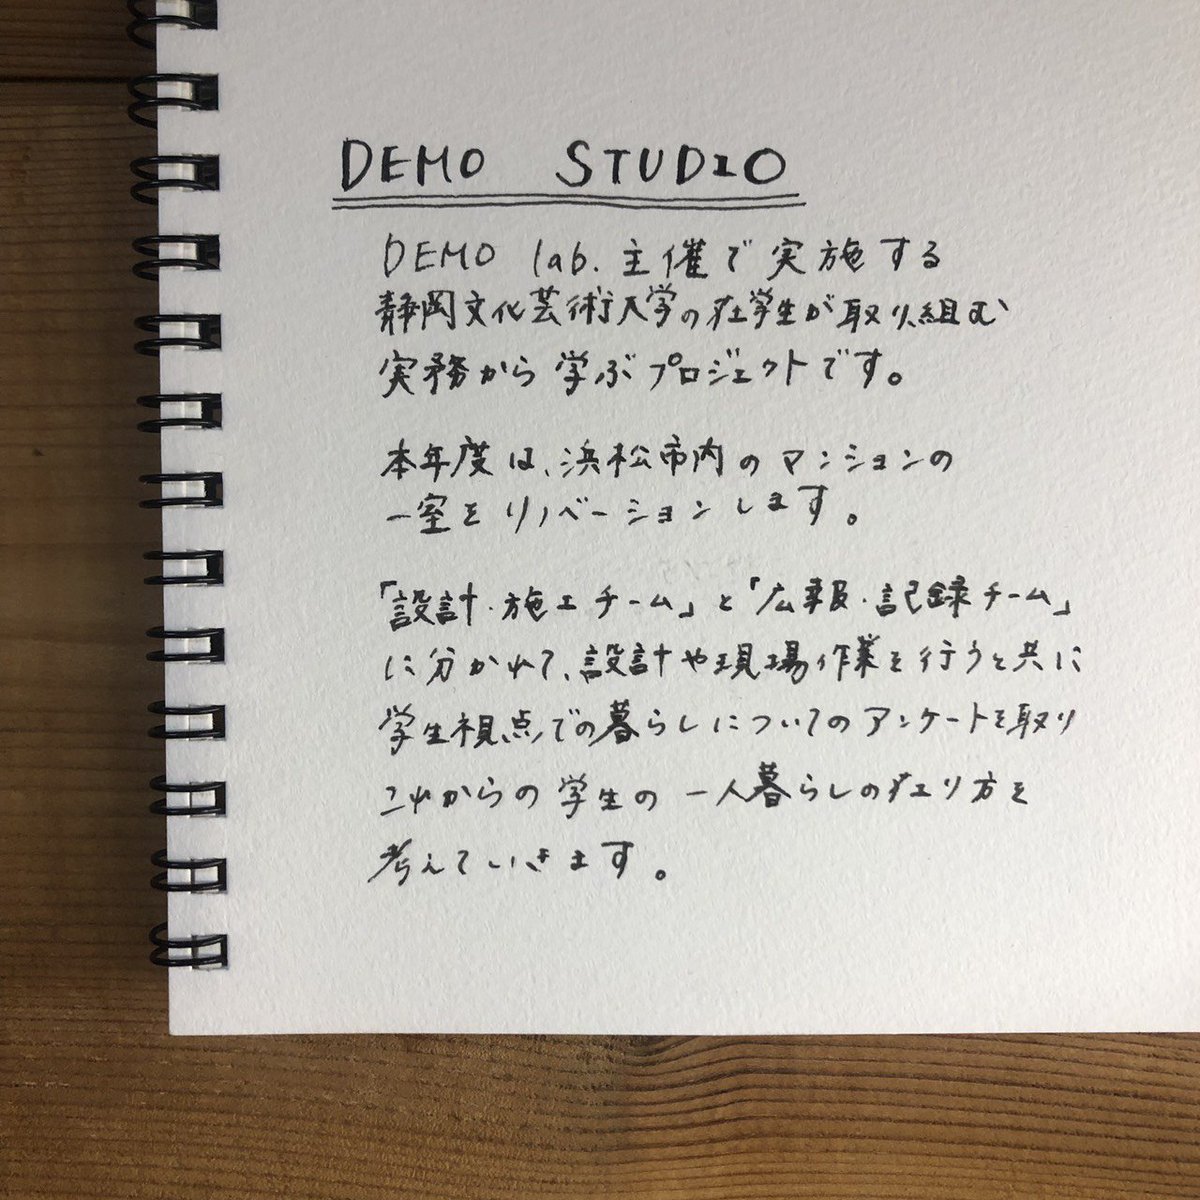 DEMO STUDIO
DEMO lab. 主催で実施する
静岡文化芸術大学の在学生が取り組む
実務から学ぶプロジェクトです。
本年度は、浜松市内のマンションの
一室をリノベーションします。
「設計・施工チーム」と「広報・記録チーム」
に分かれて、設計や現場作業を行うと共に
学生視点での暮らしについてのアンケートを取り
これからの学生の一人暮らしの在り方を
考えていきます。